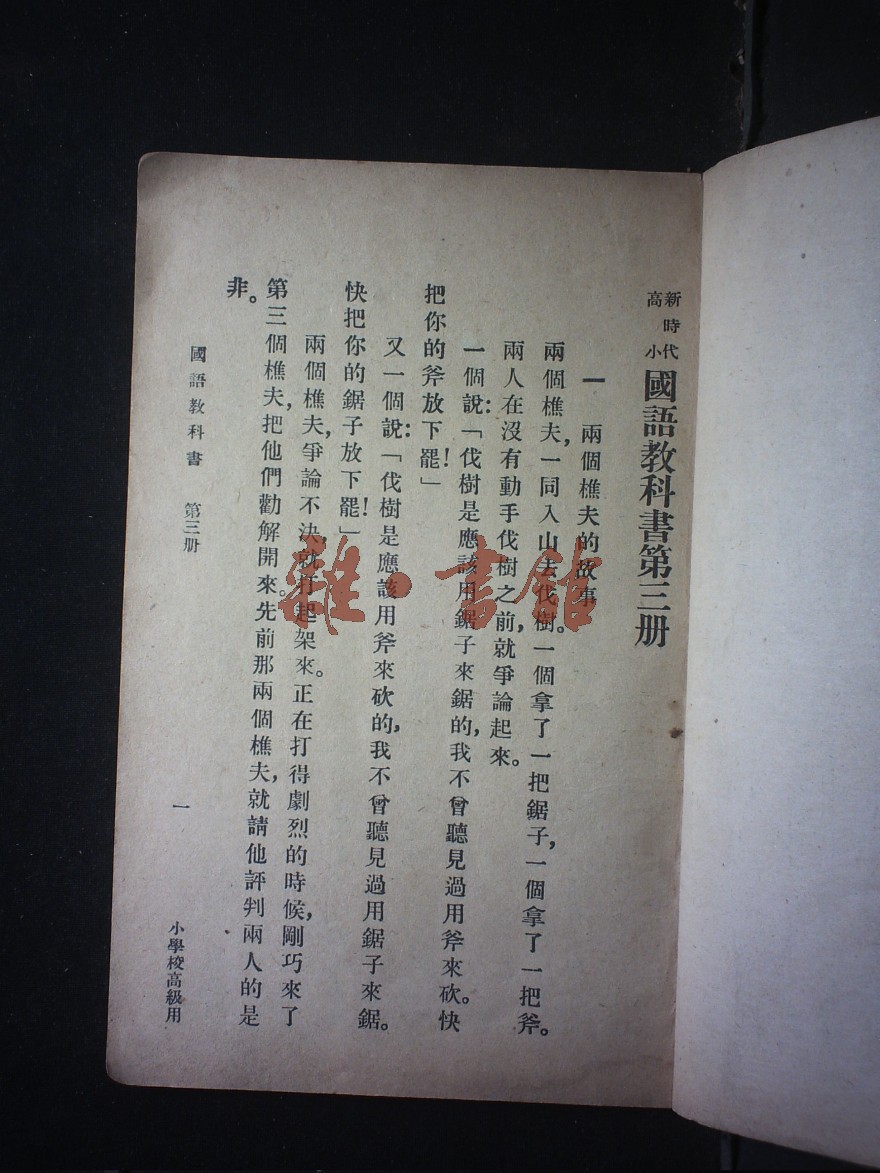 新時代
高小
國語教科書第三册
一　兩個樵夫的故事
兩個樵夫，一同入山去伐樹。一個拿了一把鋸子，一個拿了一把斧。
兩人在沒有動手伐樹之前，就爭論起來。
一個說：「伐樹是應該用鋸子來鋸的，我不曾聽見過用斧來砍。快
把你的斧放下罷！」
又一個說：「伐樹是應該用斧來砍的，我不曾聽見過用鋸子來鋸。
快把你的鋸子放下罷！」
兩個樵夫，爭論不決，就打起架來。正在打得劇烈的時候，剛巧來了
第三個樵夫，把他們勸解開來。先前那兩個樵夫，就請他評判兩人的是
非。
國語教科書　第三册　一　小學校高級用
雜·書館